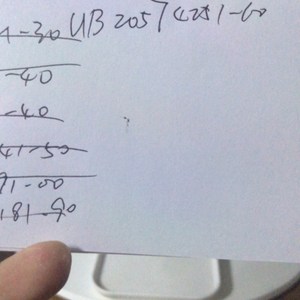 1-30 UB 2057 4251-60
-40
-40
41-50
71-00
181-90